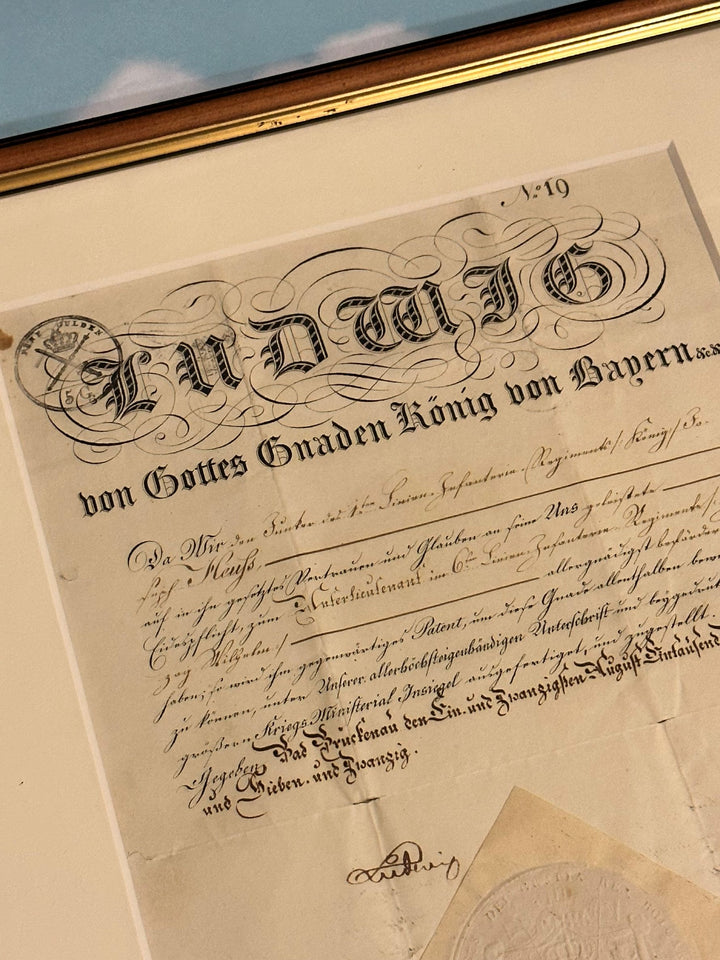 No. 19
FÜNF GULDEN
5 G
LUDWIG
von Gottes Gnaden König von Bayern &c &c
Da Wir den Junker des 1ten Linien-Infanterie-Regiments /: König :/ Jo-
seph Heuß,
auf in ihn gesetztes Vertrauen und Glauben an seine Uns geleistete
Eidespflicht, zum Unterlieutenant im 6ten Linien-Infanterie-Regimente /:
zog Wilhelm :/ allergnädigst beförder
haben; so wird ihm gegenwärtiges Patent, um diese Gnade allenthalben bewe
zu können, unter Unserer allerhöchsteigenhändigen Unterschrift und beygedruckt
größern Kriegs Ministerial-Insiegel ausgefertiget, und zugestellt.
Gegeben Bad Brückenau den Ein- und Zwanzigsten August Eintausend
und Sieben- und Zwanzig.
Ludwig